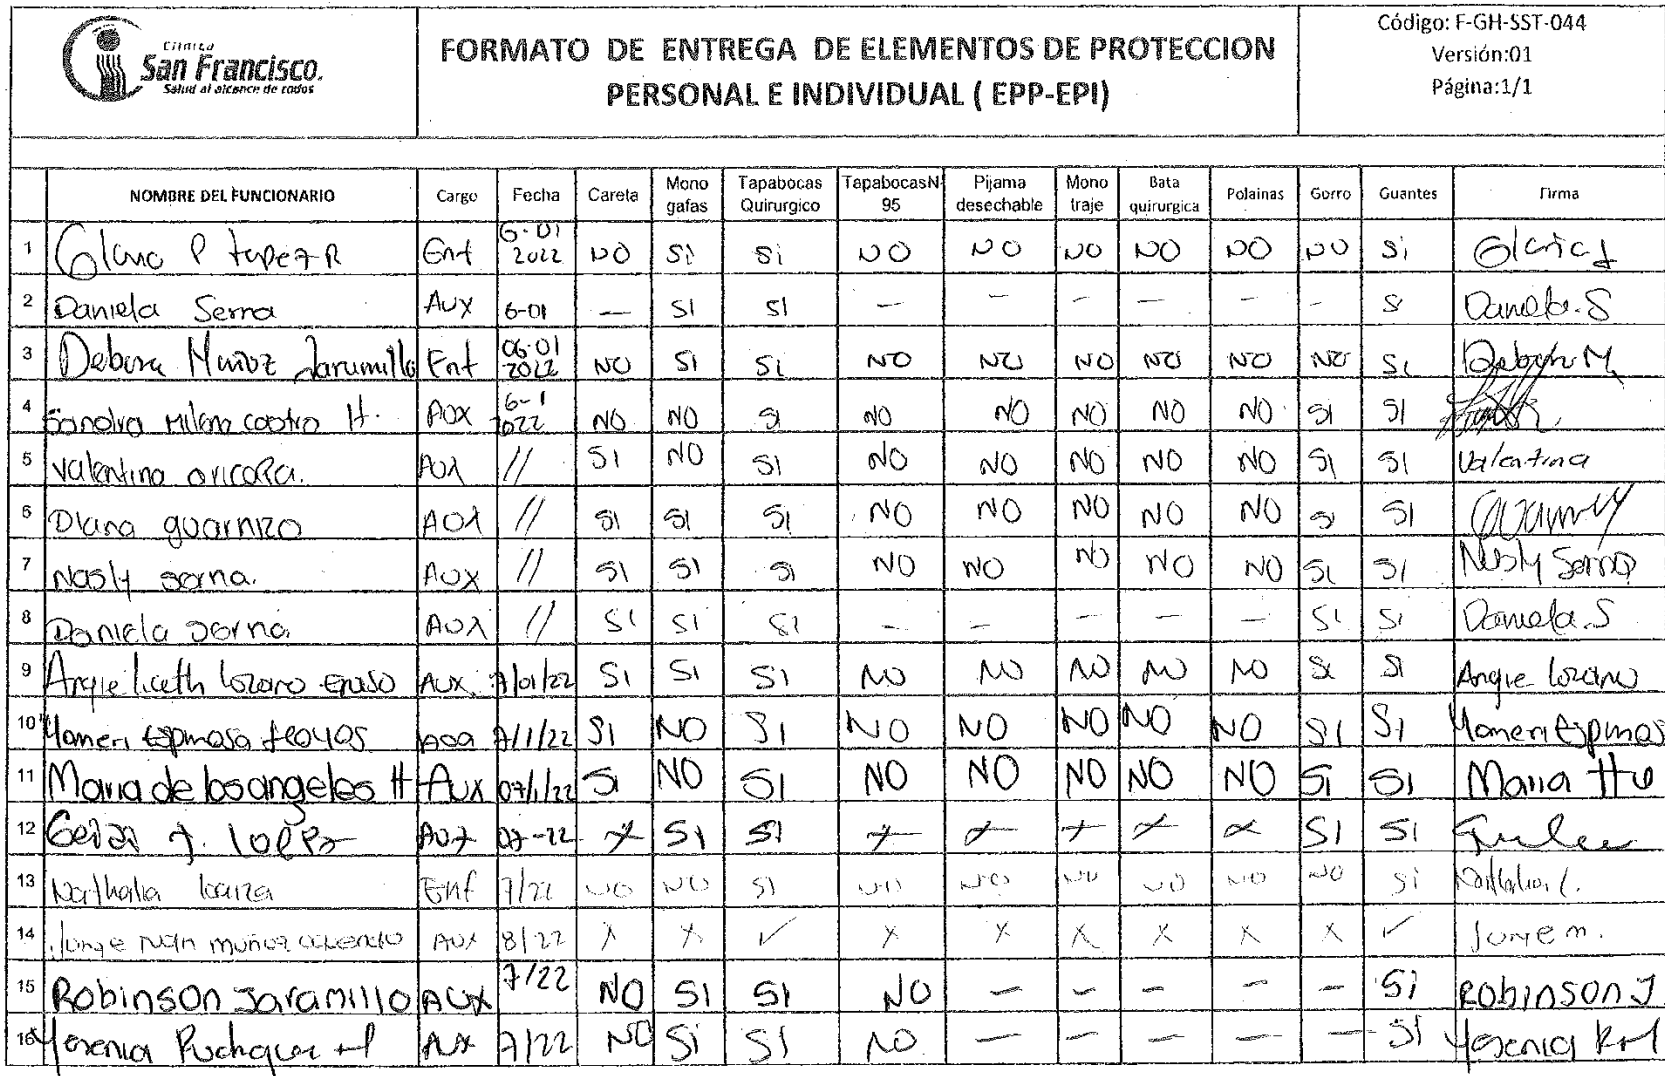 Clínica
San Francisco.
Salud al alcance de todos
FORMATO DE ENTREGA DE ELEMENTOS DE PROTECCION
PERSONAL E INDIVIDUAL ( EPP-EPI)
Código: F-GH-SST-044
Versión:01
Página:1/1
NOMBRE DEL FUNCIONARIO Cargo Fecha Careta Mono gafas Tapabocas Quirurgico TapabocasN-95 Pijama desechable Mono traje Bata quirurgica Polainas Gorro Guantes Firma
1 P Enf 6-01 2022 NO Si Si NO NO NO NO NO NO Si
2 Daniela Serna Aux 6-01 — SI SI — — — — — — Si Daniela.S
3 Debora Muñoz Jaramillo Enf 06-01 2022 NO SI Si NO NO NO NO NO NO Si Debora M
4 Sandra Milena castro H. Aux 6-1 2022 NO NO SI NO NO NO NO NO SI SI
5 Valentina Aux // SI NO SI NO NO NO NO NO SI SI Valentina
6 Diana guarnizo Aux // SI SI SI NO NO NO NO NO SI SI
7 Nasly serna. Aux // SI SI SI NO NO NO NO NO SI SI Nasly Serna
8 Daniela serna Aux // SI SI SI — — — — — SI Si Daniela.S
9 Angie liceth lozano Aux 7/01/22 SI SI SI NO NO NO NO NO Si SI Angie lozano
10 Yameri Espinosa 7/1/22 SI NO SI NO NO NO NO NO SI SI Yameri Espinos
11 Maria de los angeles H Aux 07/1/22 Si NO SI NO NO NO NO NO Si SI Maria
12 Aux 07-22 x SI SI x x x x x SI SI
13 Nathalia loaiza Enf 7/22 NO NO SI NO NO NO NO NO NO Si Nathalia l.
14 Jorge Ivan muñoz Aux 8/22 X X ✓ X X X X X X ✓ Jorge m.
15 Robinson Jaramillo Aux 7/22 NO SI SI NO — — — — — SI Robinson J
16 Yesenia Aux 7/22 NO Si SI NO — — — — — SI Yesenia